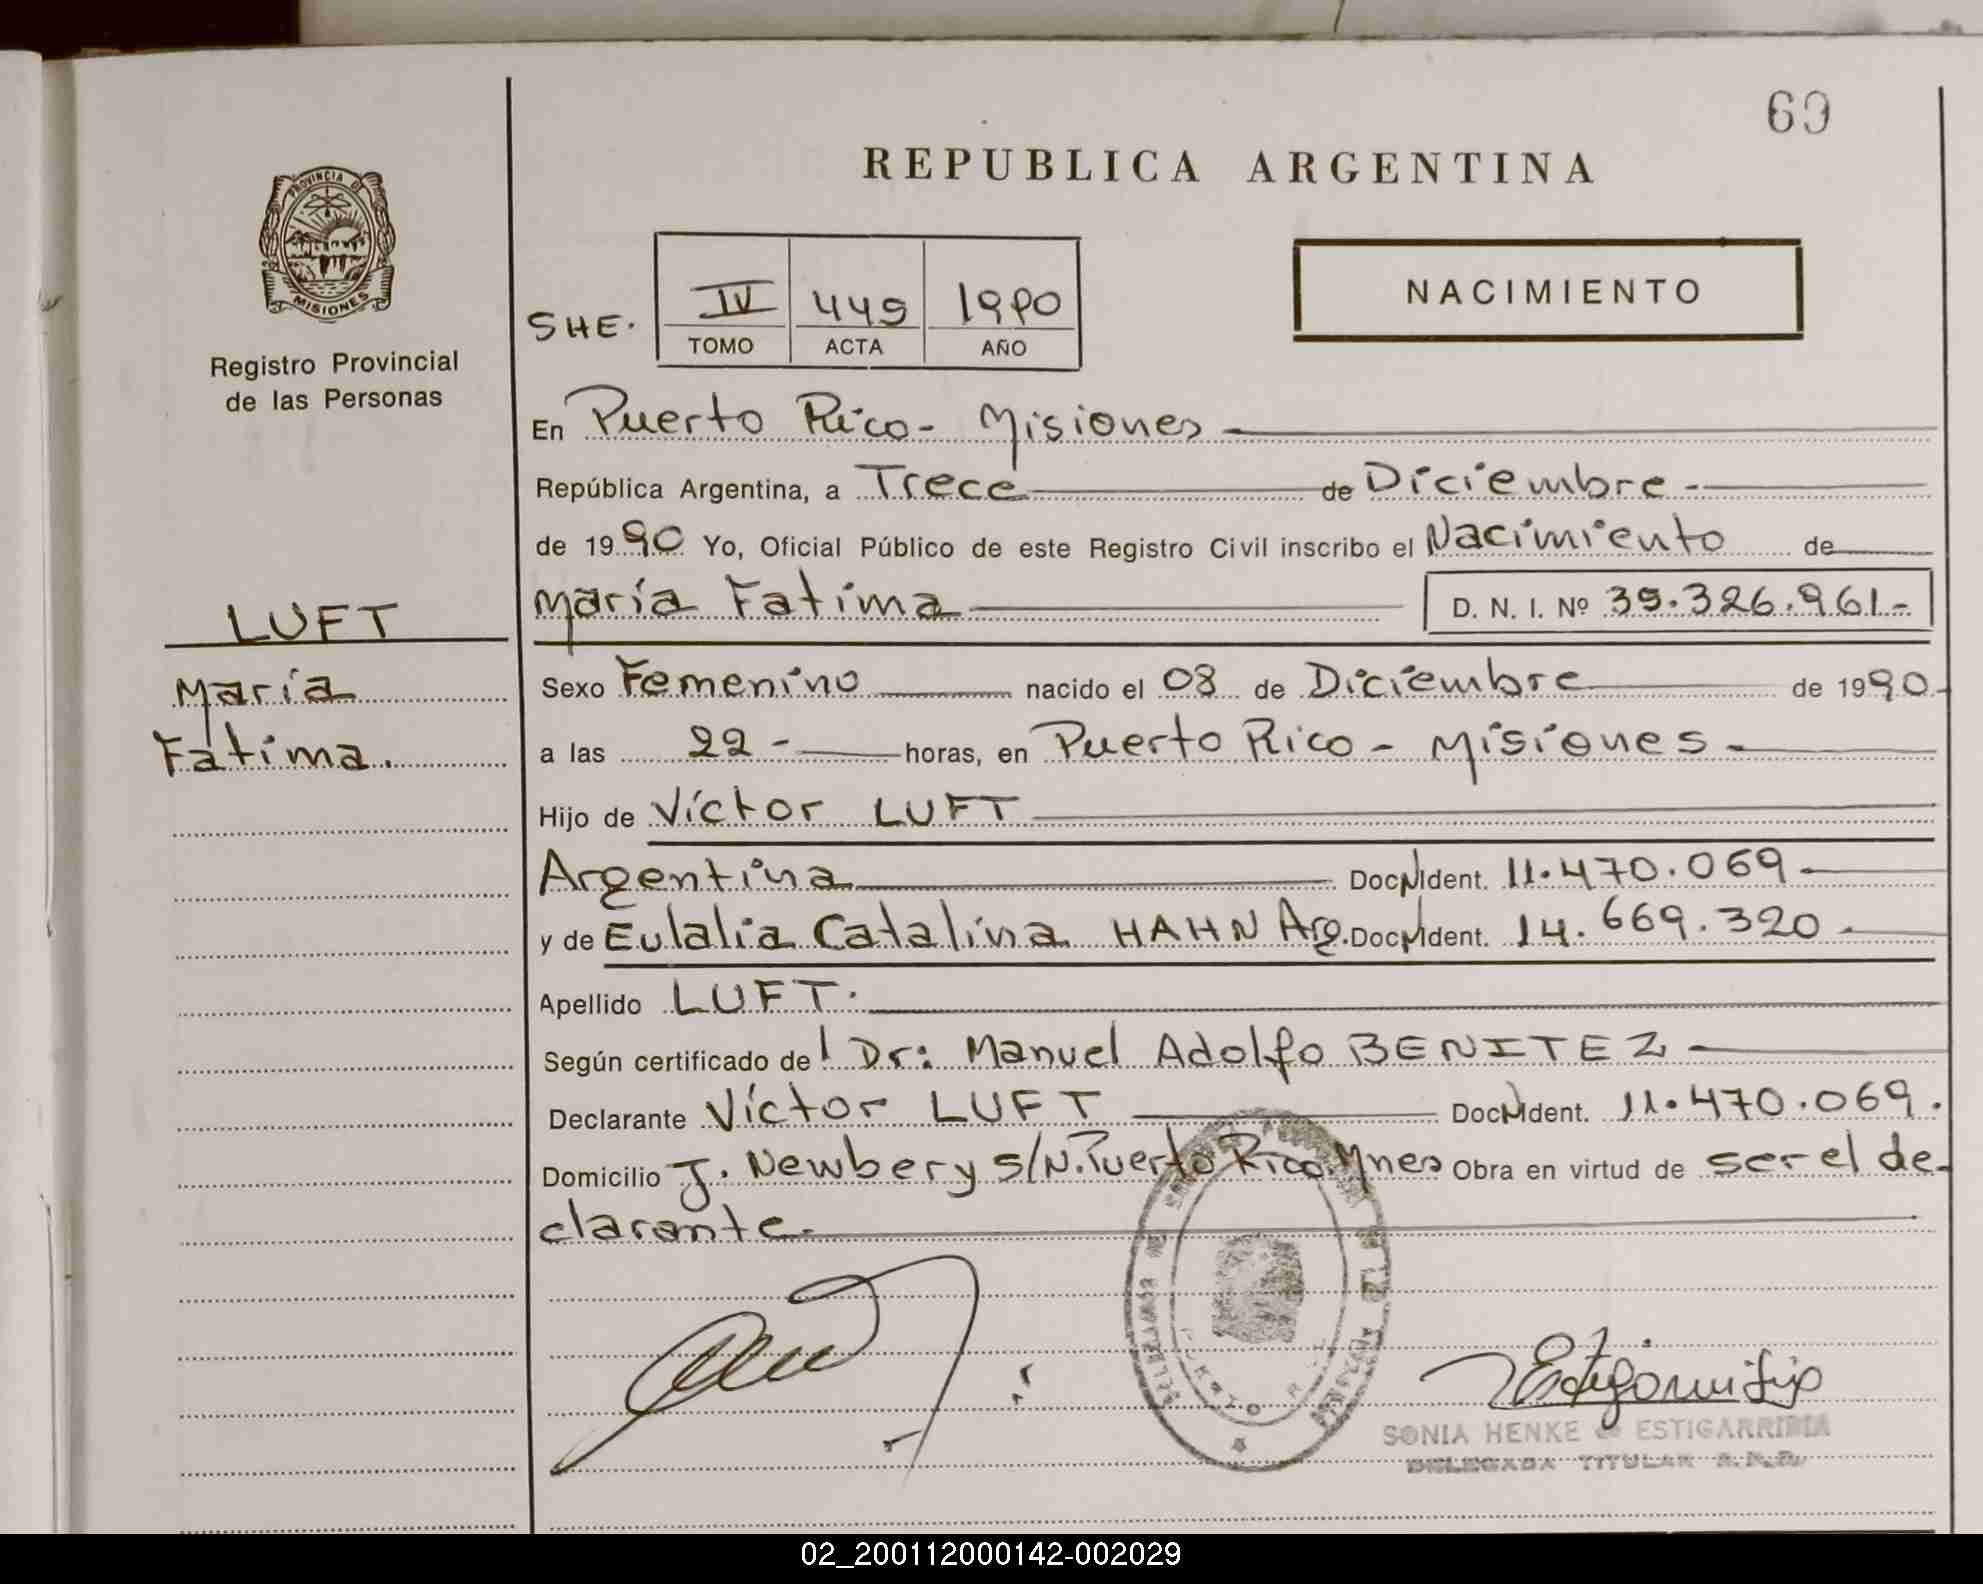 69
REPUBLICA ARGENTINA
PROVINCIA DE
MISIONES
Registro Provincial
de las Personas
SHE.
IV 449 1990
TOMO ACTA AÑO
NACIMIENTO
En Puerto Rico - Misiones
República Argentina, a Trece de Diciembre -
de 1990 Yo, Oficial Público de este Registro Civil inscribo el Nacimiento de
María Fatima D. N. I. Nº 35.326.961-
LUFT
María
Fatima.
Sexo Femenino nacido el 08 de Diciembre de 1990-
a las 22 - horas, en Puerto Rico - Misiones -
Hijo de Víctor LUFT
Argentina Doc N Ident. 11.470.069 -
y de Eulalia Catalina HAHN Arg. Doc N Ident. 14.669.320 -
Apellido LUFT.
Según certificado del Dr: Manuel Adolfo BENITEZ -
Declarante Víctor LUFT Doc N Ident. 11.470.069.
Domicilio J. Newbery s/N. Puerto Rico Mnes Obra en virtud de ser el de-
clarante.
SONIA HENKE de ESTIGARRIBIA
DELEGADA TITULAR R.P.P.
02_200112000142-002029